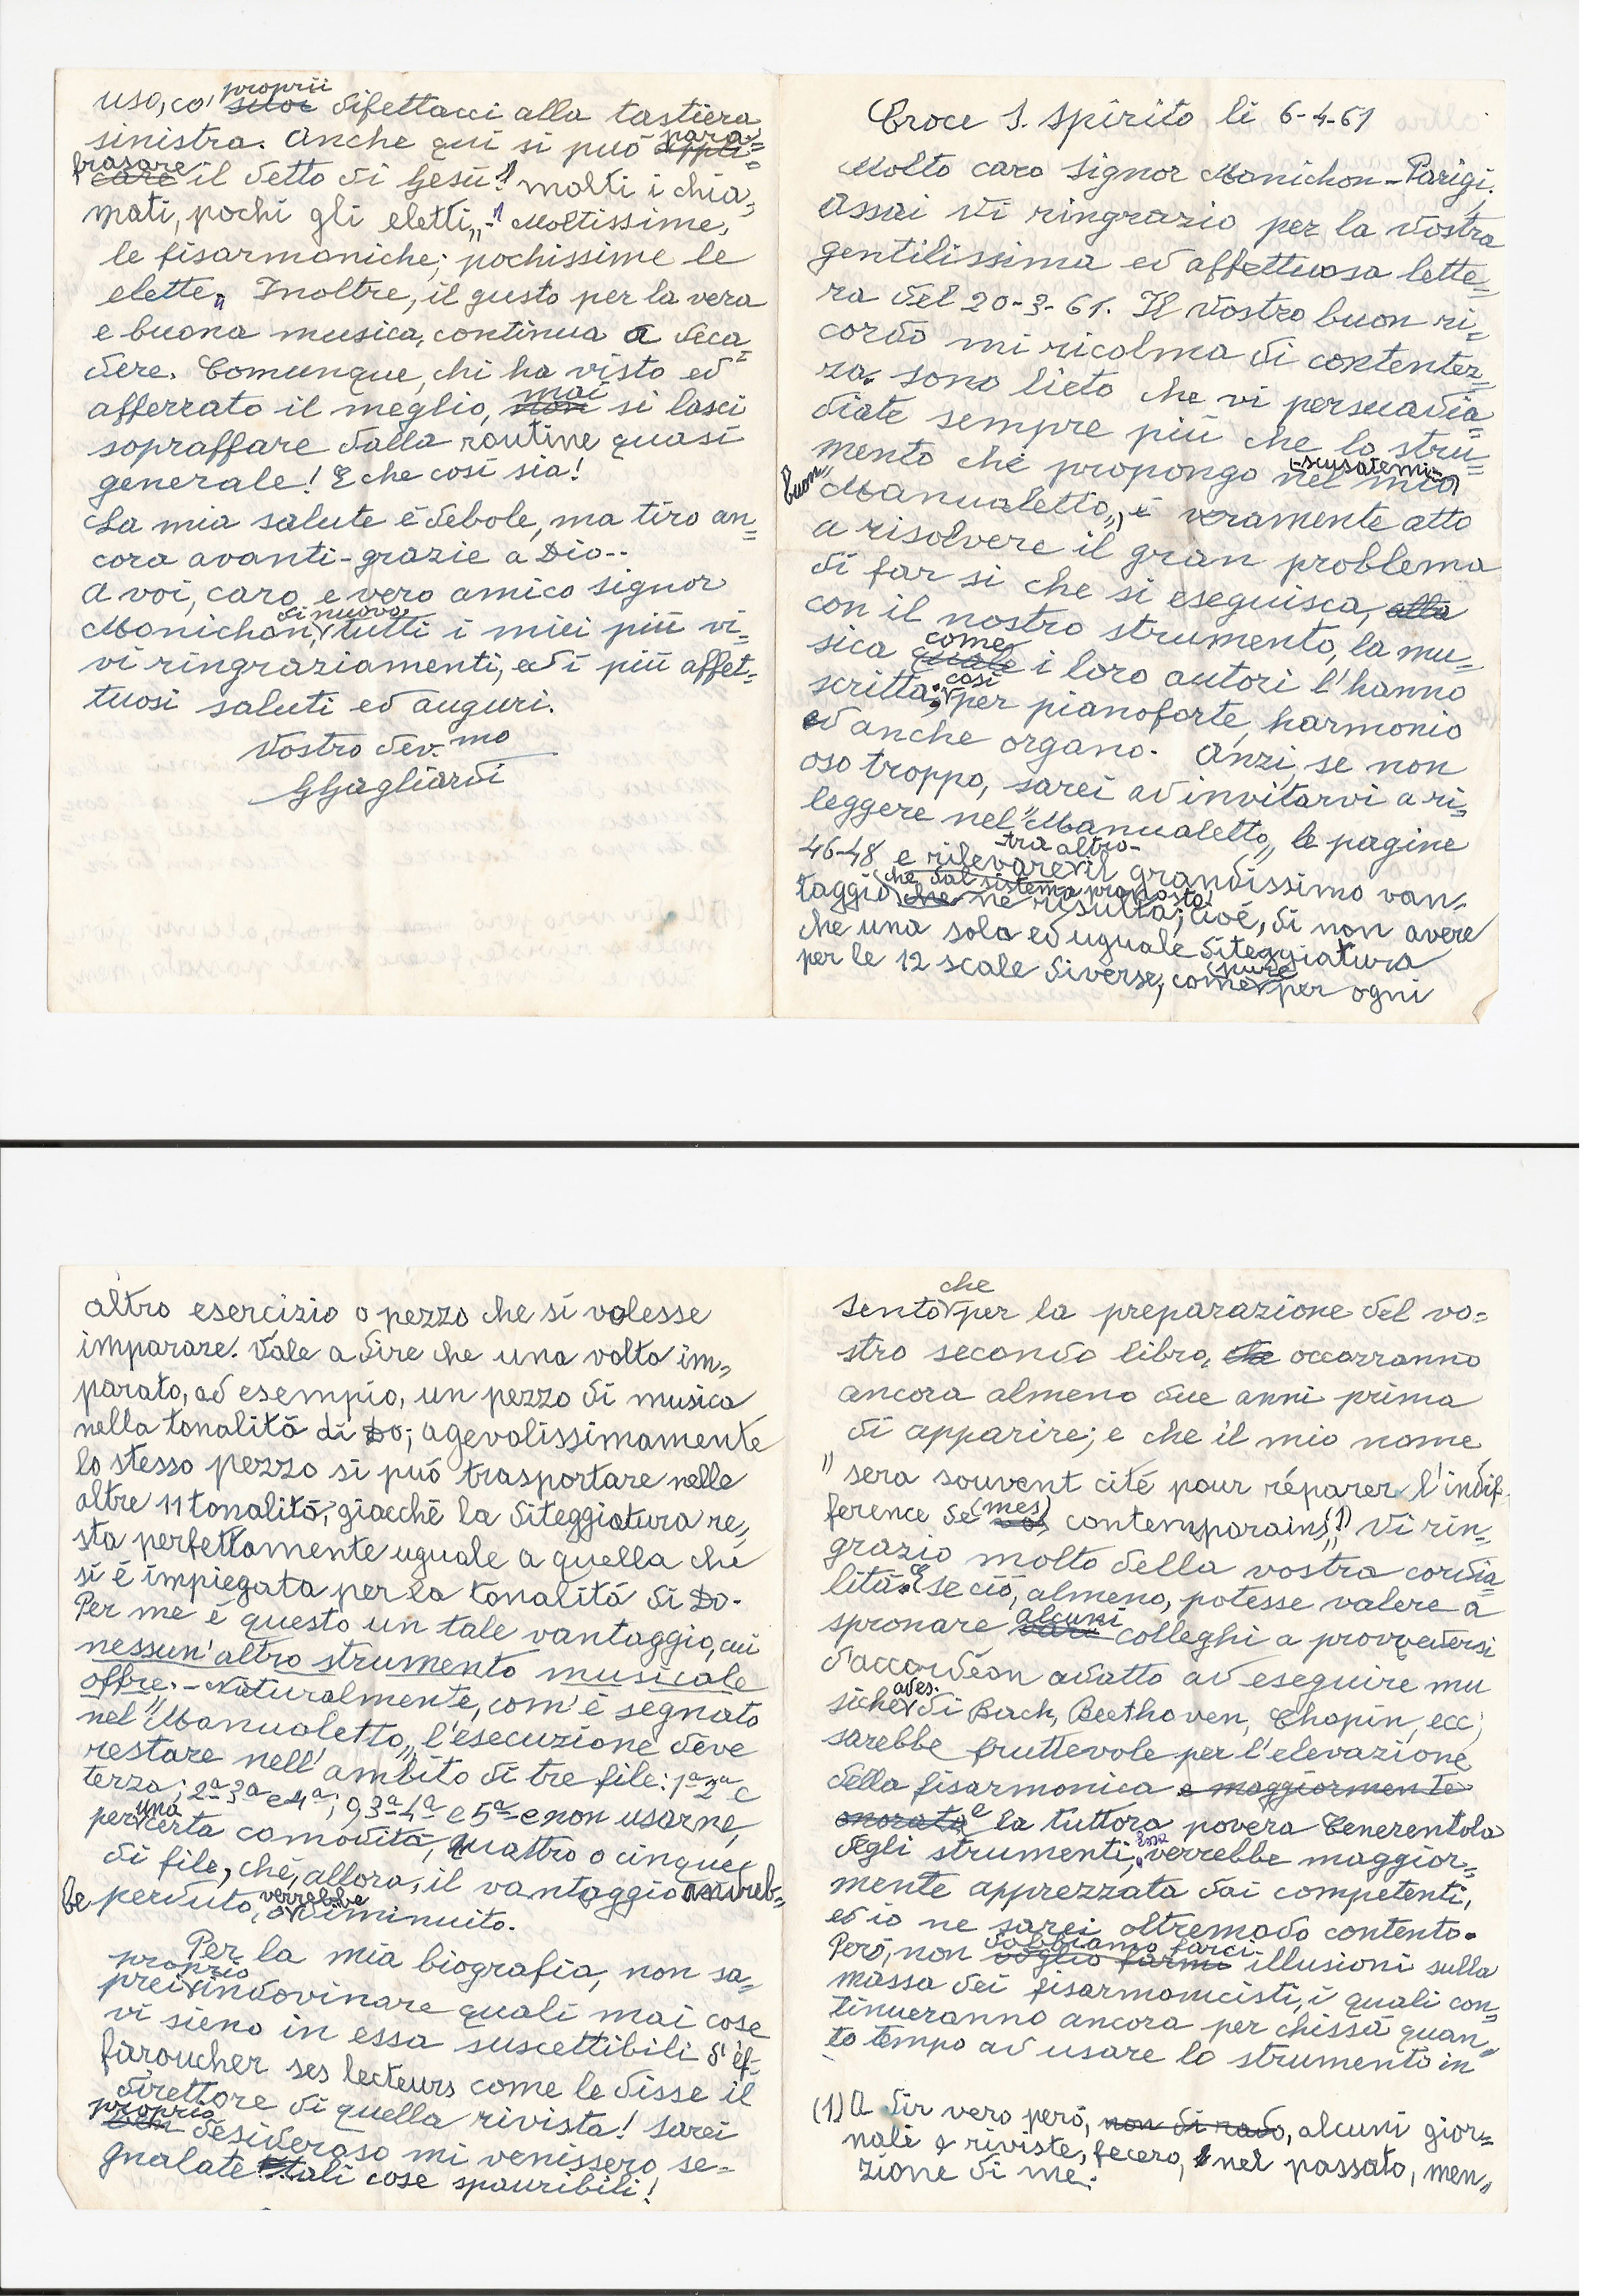 Croce S. Spirito li 6-4-61
Molto caro Signor Monichon - Parigi.
Assai Vi ringrazio per la Vostra
gentilissima ed affettuosa lette=
ra del 20-3-61. Il Vostro buon ri=
cordo mi ricolma di contentez=
za. Sono lieto che vi persuadia=
diate sempre più che lo stru=
mento che propongo nel mio
-scusatemi-
buon "Manualetto„, è veramente atto
a risolvere il gran problema
di far sì che si eseguisca, alla
con il nostro strumento, la mu=
sica quale come i loro autori l'hanno
scritta; così per pianoforte, harmonio
ed anche organo. Anzi, se non
oso troppo, sarei ad invitarvi a ri=
leggere nel "Manualetto„ le pagine
46-48 e rilevare -tra altro- il grandissimo van-
taggio che che dal sistema proposto ne risulta; cioè, di non avere
che una sola ed uguale diteggiatura
per le 12 scale diverse, come pure per ogni
altro esercizio o pezzo che si volesse
imparare. Vale a dire che una volta im=
parato, ad esempio, un pezzo di musica
nella tonalità di Do; agevolissimamente
lo stesso pezzo si può trasportare nelle
altre 11 tonalità, giacchè la diteggiatura re=
sta perfettamente uguale a quella che
si è impiegata per la tonalità di Do.
Per me è questo un tale vantaggio, cui
nessun'altro strumento musicale
offre. - Naturalmente, com'è segnato
nel "Manualetto„ l'esecuzione deve
restare nell'ambito di tre file: 1ª 2ª e
terza; 2ª 3ª e 4ª; o 3ª 4ª e 5ª e non usarne,
per una certa comodità, quattro o cinque
di file, chè, allora, il vantaggio andreb=
be perduto, o verrebbe diminuito.
Per la mia biografia, non sa=
prei proprio indovinare quali mai cose
vi sieno in essa suscettibili d'ef-
faroucher ses lecteurs come le disse il
direttore di quella rivista! Sarei
ben proprio desideroso mi venissero se=
gnalate tali cose spauribili!
Sento che per la preparazione del vo=
stro secondo libro, che occorranno
ancora almeno due anni prima
di apparire; e che il mio nome
"sera souvent cité pour réparer l'indif-
ference de vos (mes) contemporains„(1) Vi rin=
grazio molto della vostra cordia=
lità. E se ciò, almeno, potesse valere a
spronare vari alcuni colleghi a provvedersi
d'accordéon adatto ad eseguire mu
siche ad es. di Bach, Beethoven, Chopin, ecc,
sarebbe fruttevole per l'elevazione
della fisarmonica e maggiormente
onorata e la tuttora povera Cenerentola
degli strumenti, verrebbe maggior=
mente apprezzata dai competenti,
ed io ne sarei oltremodo contento.
Però, non voglio farmi dobbiamo farci illusioni sulla
massa dei fisarmonicisti, i quali con=
tinueranno ancora per chissà quan=
to tempo ad usare lo strumento in
(1) A dir vero però, non di rado, alcuni gior=
nali e riviste, fecero, nel passato, men=
zione di me.
uso, co' suoi proprii difettacci alla tastiera
sinistra. Anche qui si può appli= para=
care frasare il detto di Gesù: "molti i chia=
mati, pochi gli eletti„ - "Moltissime,
le fisarmoniche; pochissime le
elette„ Inoltre, il gusto per la vera
e buona musica, continua a deca=
dere. Comunque, chi ha visto ed
afferrato il meglio, non mai si lasci
sopraffare dalla routine quasi
generale! E che così sia!
La mia salute è debole, ma tiro an=
cora avanti - grazie a Dio -.
A voi, caro e vero amico signor
Monichon, di nuovo tutti i miei più vi=
vi ringraziamenti, ed i più affet=
tuosi saluti ed auguri.
Vostro dev.mo
GGagliardi